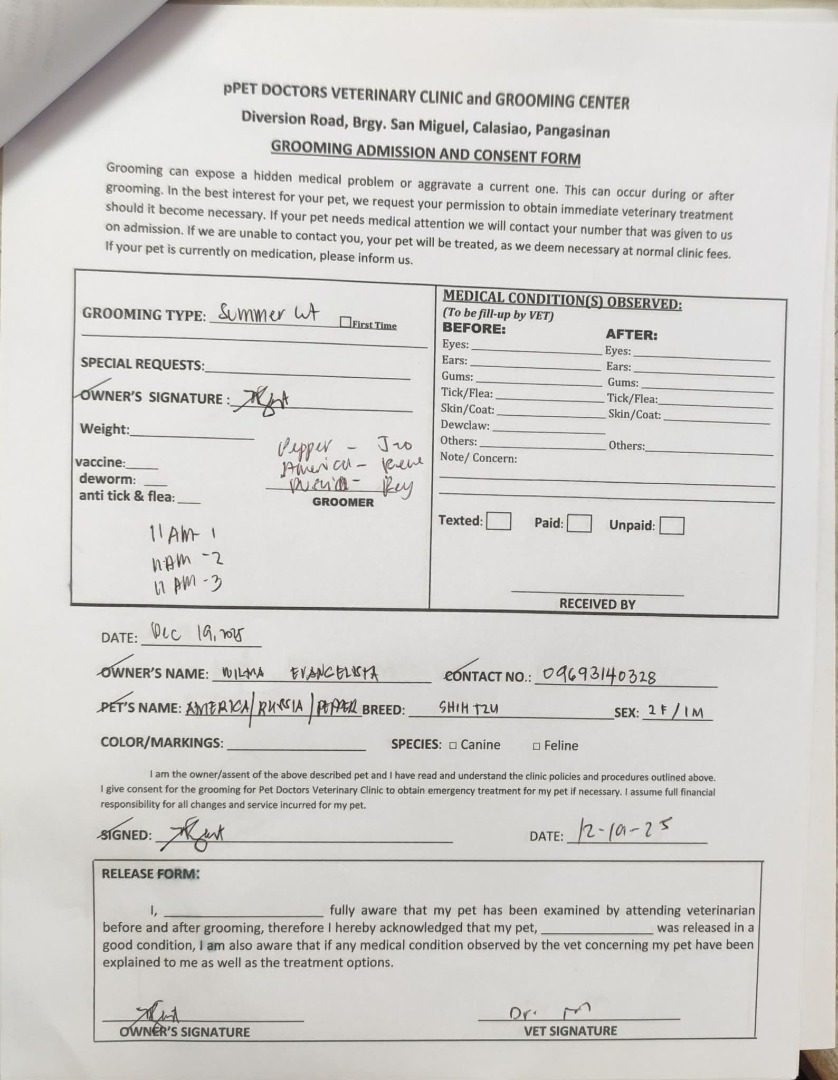 pPET DOCTORS VETERINARY CLINIC and GROOMING CENTER
Diversion Road, Brgy. San Miguel, Calasiao, Pangasinan
GROOMING ADMISSION AND CONSENT FORM
Grooming can expose a hidden medical problem or aggravate a current one. This can occur during or after
grooming. In the best interest for your pet, we request your permission to obtain immediate veterinary treatment
should it become necessary. If your pet needs medical attention we will contact your number that was given to us
on admission. If we are unable to contact you, your pet will be treated, as we deem necessary at normal clinic fees.
If your pet is currently on medication, please inform us.
GROOMING TYPE: Summer cut First Time
SPECIAL REQUESTS:
OWNER'S SIGNATURE :
Weight:
Pepper - Jro
vaccine: America - Rene
deworm: Russia - Rey
anti tick & flea: GROOMER
11 AM 1
11 AM -2
11 AM -3
MEDICAL CONDITION(S) OBSERVED:
(To be fill-up by VET)
BEFORE: AFTER:
Eyes: Eyes:
Ears: Ears:
Gums: Gums:
Tick/Flea: Tick/Flea:
Skin/Coat: Skin/Coat:
Dewclaw:
Others: Others:
Note/ Concern:
Texted: Paid: Unpaid:
RECEIVED BY
DATE: Dec 19, 2025
OWNER'S NAME: WILMA EVANGELISTA CONTACT NO.: 09693140328
PET'S NAME: AMERICA/RUSSIA/PEPPER BREED: SHIH TZU SEX: 2F/1M
COLOR/MARKINGS: SPECIES: Canine Feline
I am the owner/assent of the above described pet and I have read and understand the clinic policies and procedures outlined above.
I give consent for the grooming for Pet Doctors Veterinary Clinic to obtain emergency treatment for my pet if necessary. I assume full financial
responsibility for all changes and service incurred for my pet.
SIGNED: DATE: 12-19-25
RELEASE FORM:
I, fully aware that my pet has been examined by attending veterinarian
before and after grooming, therefore I hereby acknowledged that my pet, was released in a
good condition, I am also aware that if any medical condition observed by the vet concerning my pet have been
explained to me as well as the treatment options.
Dr. M
OWNER'S SIGNATURE VET SIGNATURE